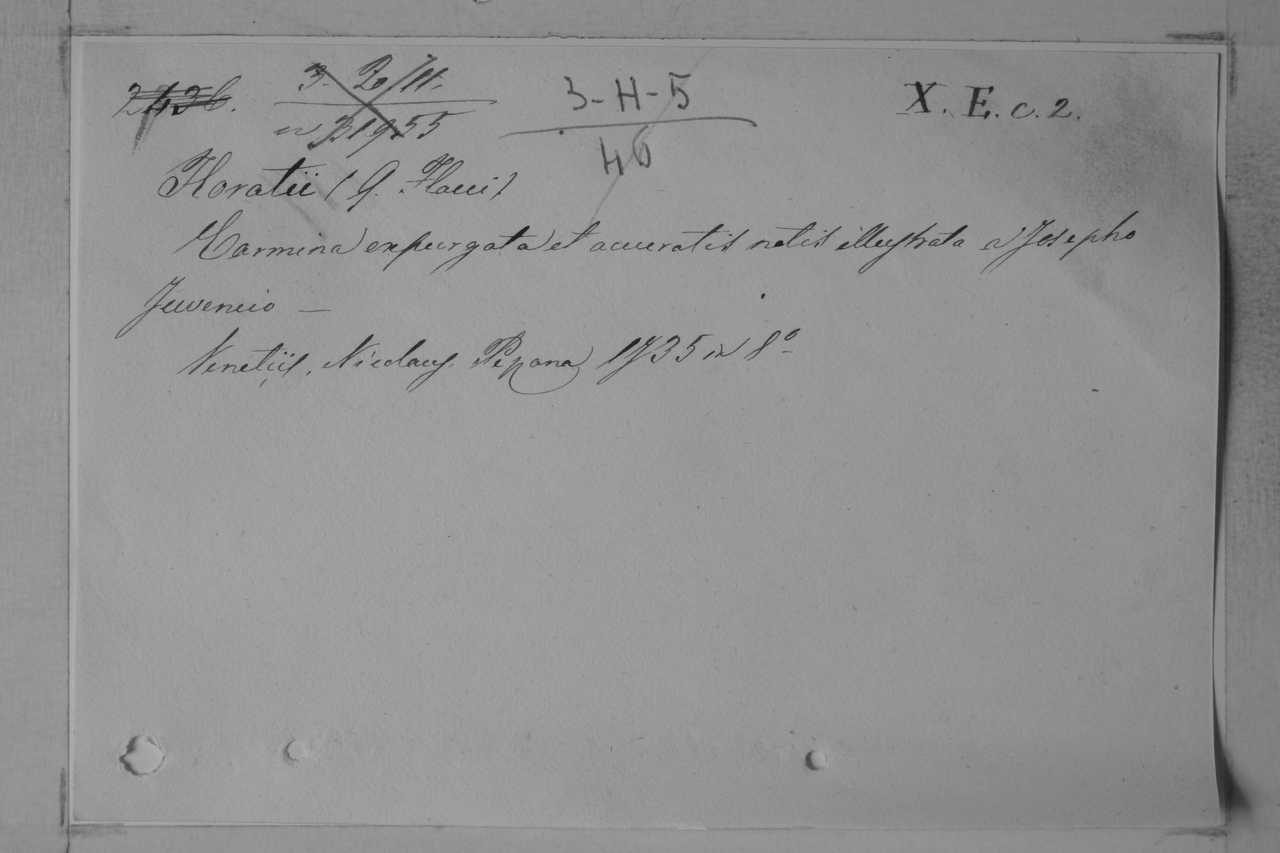 3-H-5
46
X. E. c. 2.
Horatii (Q. Flacci)
Carmina expurgata et accuratis notis illustrata a Josepho
Juvencio —
Venetiis, Nicolaus Pezzana, 1735 in 8º